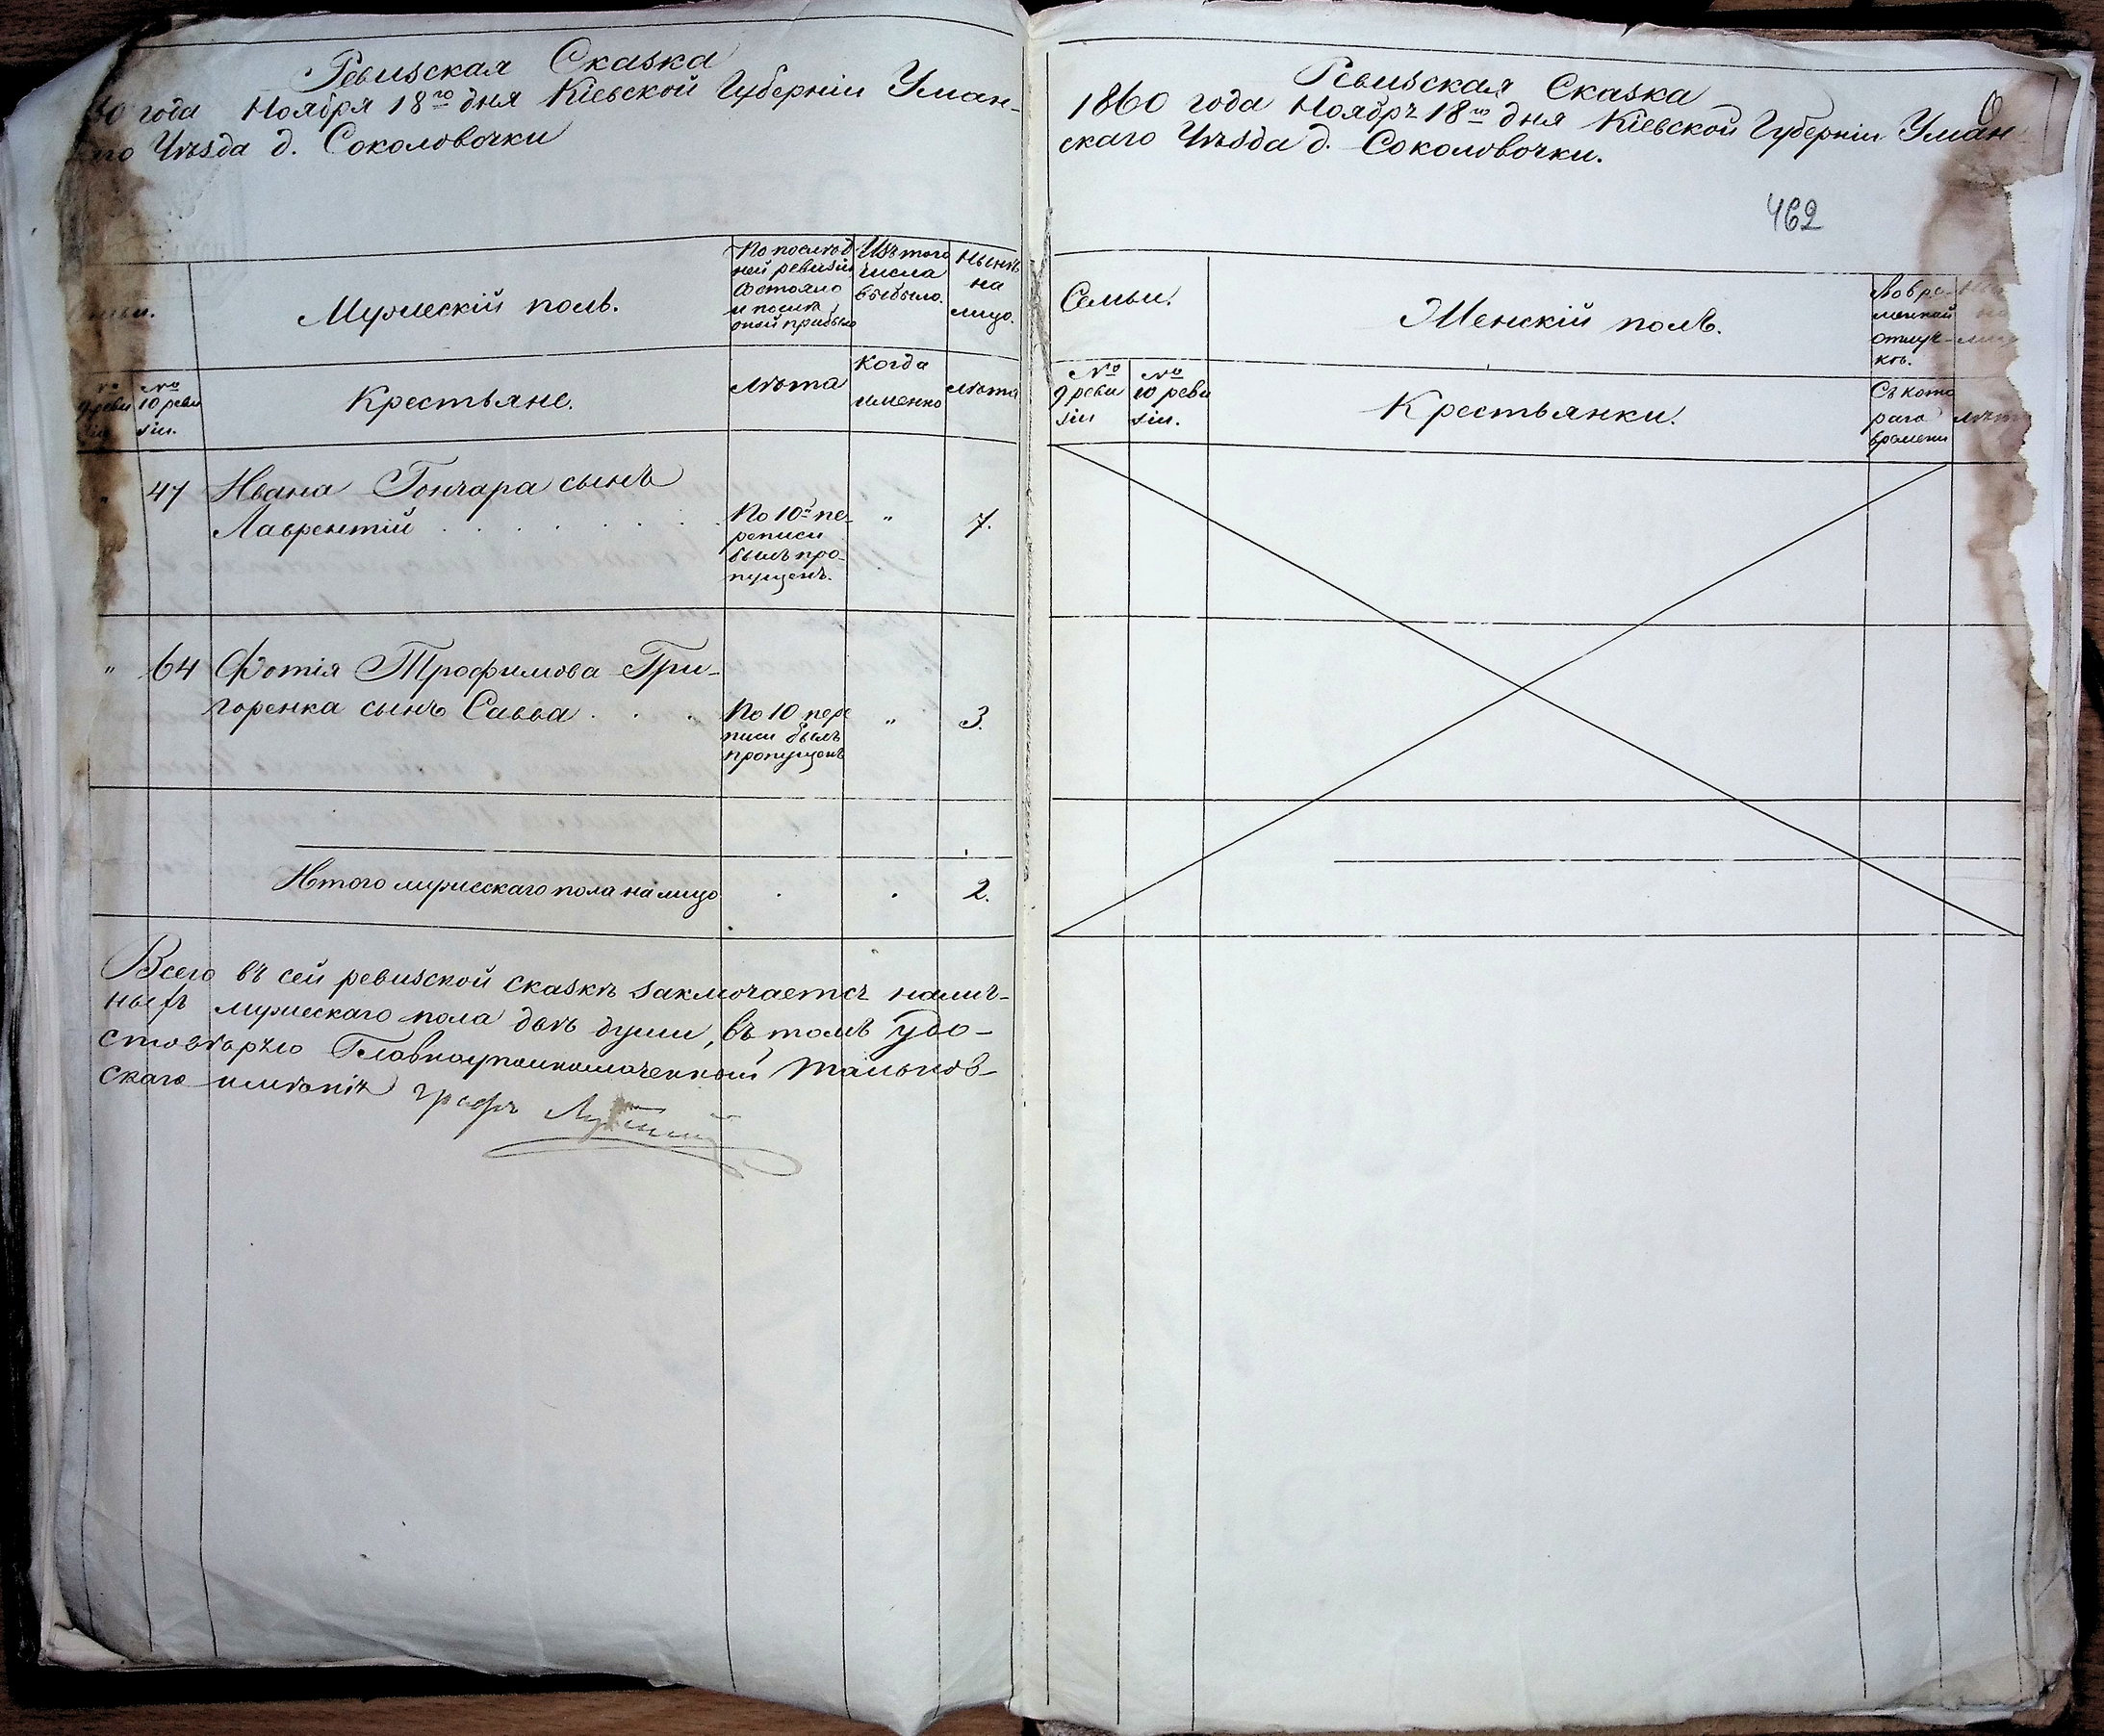 Ревизская Сказка
года Ноября 18го дня Кіевской Губерніи Уман-
Уѣзда д. Соколовочки
Мужескій полъ.
По послѣд
ней ревизіи
состояло
и послѣ
оной прибыло
Изъ того
числа
выбыло.
Нынѣ
на
лицо.
№
9 реви
зіи
№
10 реви
зіи.
Крестьяне.
лѣта
Когда
именно
лѣта
" 47 Ивана Гончара сынъ
Лаврентій . . . . . . .
По 10й пе-
реписи
былъ про-
пущенъ.
" 7.
" 64 Фотія Трофимова Гри-
горенка сынъ Савва . . .
По 10 пере
писи былъ
пропущенъ
" 3.
Итого мужескаго пола на лицо . . 2.
Всего въ сей ревизской сказкѣ заключается налич-
ныхъ мужескаго пола двѣ души, въ томъ удо-
стовѣряю Главноуполномоченный Тальнов-
скаго имѣнія графъ
Ревизская Сказка
1860 года Ноября 18го дня Кіевской Губерніи Уман
скаго Уѣзда д. Соколовочки.
462
Семьи.
Женскій полъ.
Во вре-
менной
отлуч-
кѣ.
№
9 реви
зіи
№
10 реви
зіи.
Крестьянки.
Съ кото
раго
времени